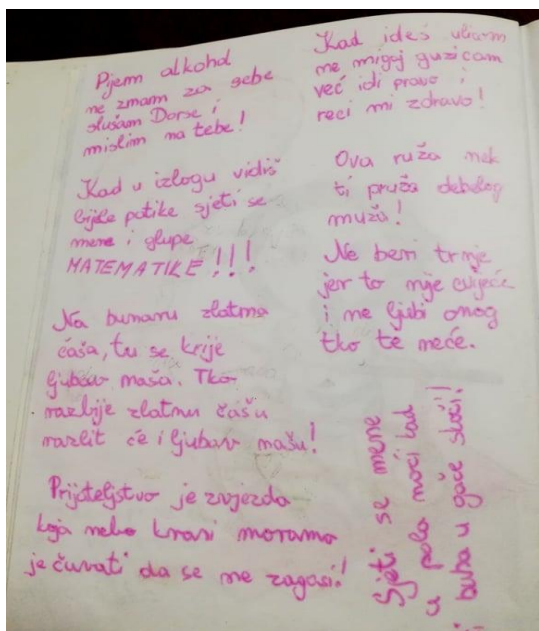 Pijem alkohol
ne znam za sebe
slušam Dorse i
mislim na tebe!
Kad u izlogu vidiš
bijele patike sjeti se
mene i glupe
MATEMATIKE!!!
Na bunaru zlatna
čaša, tu se krije
ljubav naša. Tko
razbije zlatnu čašu
razlit će i ljubav našu!
Prijateljstvo je zvijezda
koja nebo krasi moramo
je čuvati da se ne zagasi!
Kad ideš ulicom
ne migaj guzicam
već idi pravo i
reci mi zdravo!
Ova ruža nek
ti pruža debelog
muža!
Ne beri trnje
jer to nije cvijeće
i ne ljubi onog
tko te neće.
Sjeti se mene
u pola noći kad
ti buba u gaće skoči!